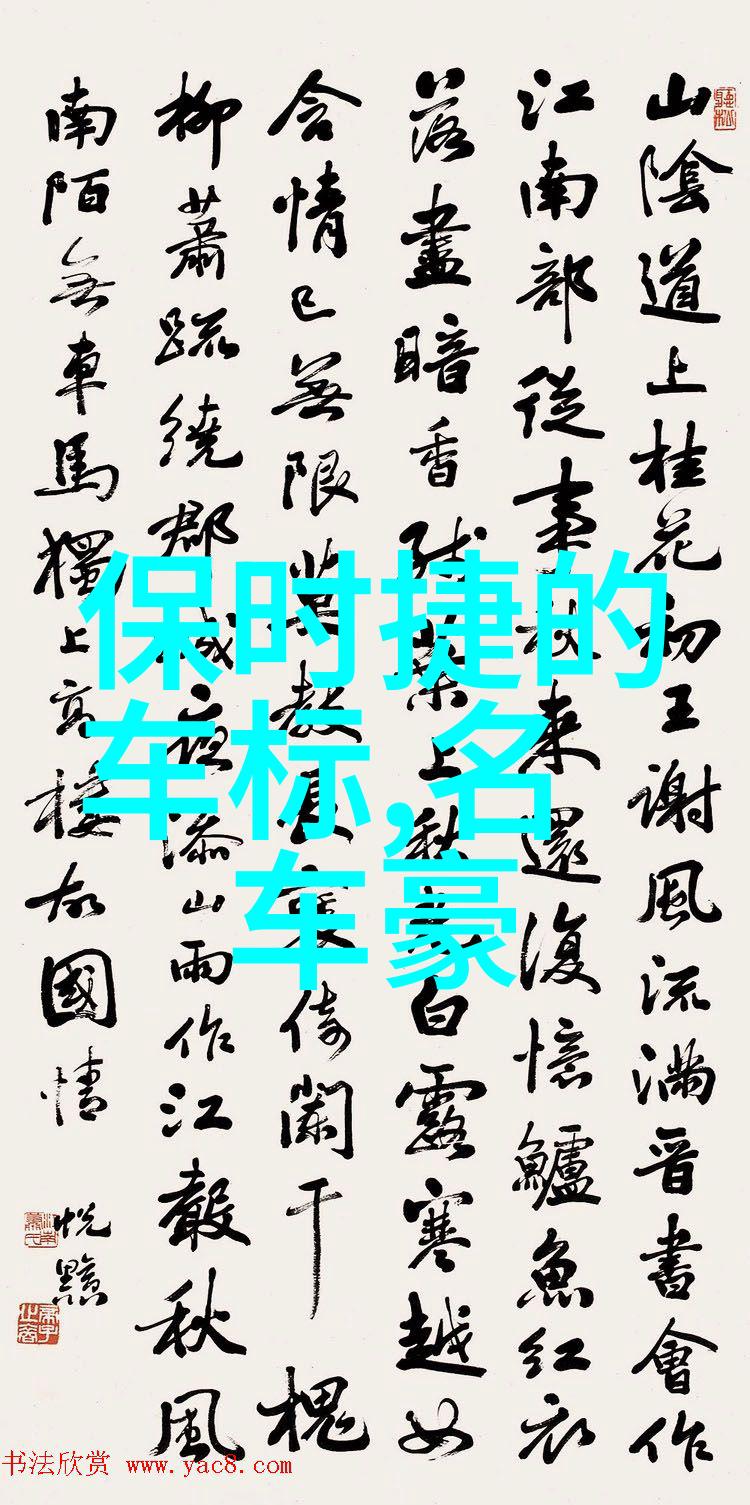 山陰道上桂花初王謝風流滿晉書會作
江南部從事秋來還復憶鱸魚紅衣
落盡暗香殘葉上秋光白露寒越女
含情已無限莫教長袖倚闌干槐
柳蕭疏繞郡城夜添山雨作江聲秋風
南陌無車馬獨上高樓故國情
保时捷的
车标,名
车豪
书法欣赏 www.yac8.com